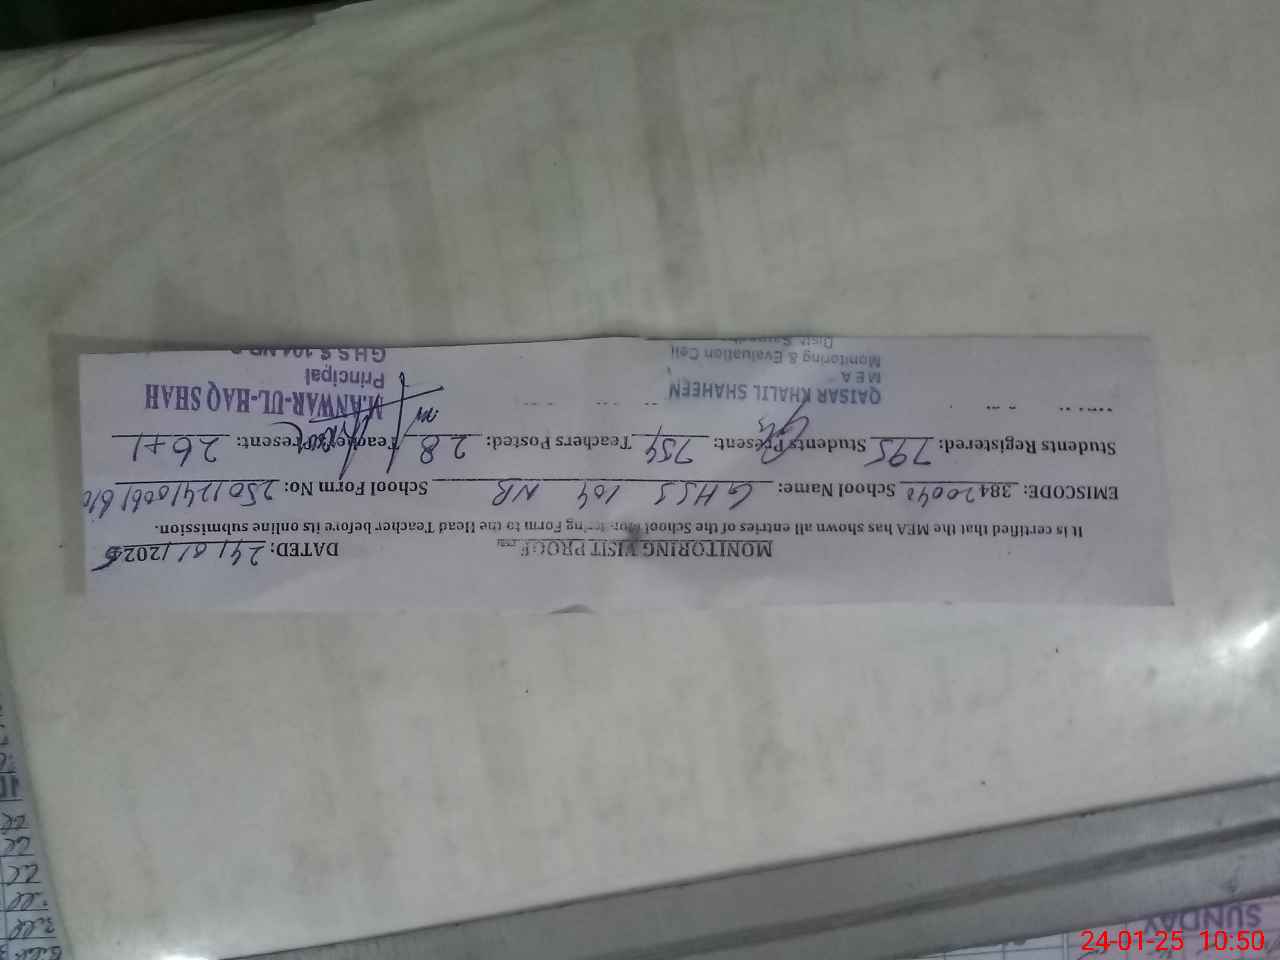 MONITORING VISIT PROOF DATED: 24/01/2025
It is certified that the MEA has shown all entries of the School Monitoring Form to the Head Teacher before its online submission.
EMISCODE: 38420040 School Name: GHSS 104 NB School Form No:
Students Registered: 795 Students Present: 754 Teachers Posted: 28 Teacher Present: 26+1
QAISAR KHALIL SHAHEEN
MEA
Monitoring & Evaluation Cell
M.ANWAR-UL-HAQ SHAH
Principal
G.H.S.S 104 NB
SUNDAY
24-01-25 10:50